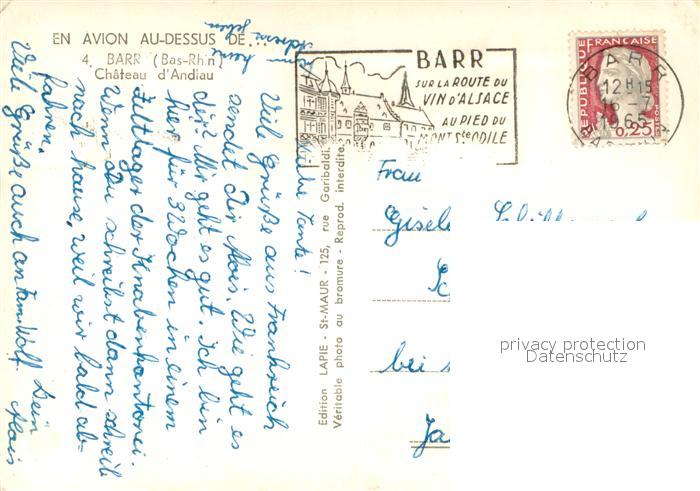 EN AVION AU-DESSUS DE...
4. BARR (Bas-Rhin)
Château d'Andlau
BARR
SUR LA ROUTE DU
VIN D'ALSACE
AU PIED DU
MONT Ste ODILE
REPUBLIQUE FRANÇAISE
BARR
12H15
16-7
1965
0,25
Liebe Tante!
Viele Grüße aus Frankreich
sendet Dir Alois. Wie geht es
dir? Mir geht es gut. Ich bin
hier für 3 Wochen in einem
Zeltlager der Knabenkantorei.
Wenn Du schreibst dann schreib
nach hause, weil wir bald ab-
fahren.
Viele Grüße auch an Fam. Wolf
Dein
Alois
Edition LAPIE - St-MAUR - 125, rue Garibaldi.
Véritable photo au bromure - Reprod. interdite.
Frau
bei
privacy protection
Datenschutz